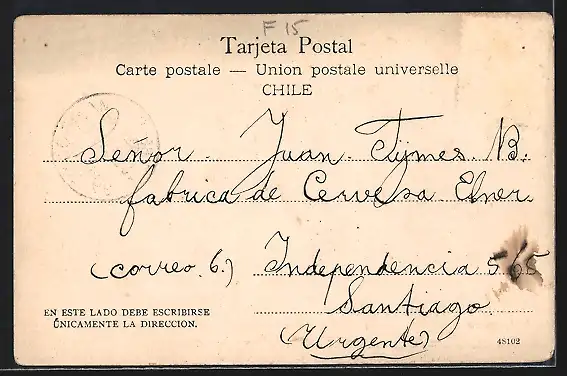 F 15
Tarjeta Postal
Carte postale — Union postale universelle
CHILE
Señor Juan Tymes B.
fabrica de Cervesa Ebner
(correo 6.) Independencia 565
Santiago
(Urgente)
EN ESTE LADO DEBE ESCRIBIRSE
ÚNICAMENTE LA DIRECCION.
48102